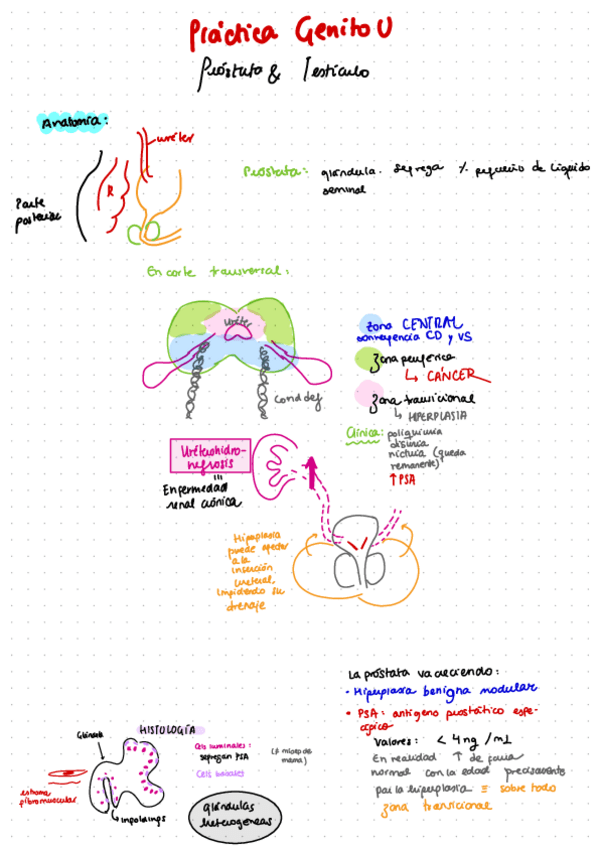 Práctica Genito U
Próstata & Testículo
Anatomía:
uréter
R
Parte
posterior
Próstata: glándula. segrega % pequeño de líquido
seminal
En corte transversal:
Uréter
Cond def
Zona CENTRAL
convergencia CD y VS
Zona periférica
↳ CÁNCER
Zona transicional
↳ HIPERPLASIA
Clínica: poliquiuria
disuria
nicturia (queda
remanente)
↑PSA
Uréterohidro-
nefrosis
Enfermedad
renal crónica
Hiperplasia
puede afectar
a la
inserción
ureteral,
impidiendo su
drenaje
La próstata va creciendo:
• Hiperplasia benigna nodular
• PSA: antígeno prostático espe-
cífico
Valores: < 4 ng / ml
En realidad ↑ de forma
normal con la edad precisamente
por la hiperplasia = sobre todo
zona transicional
HISTOLOGÍA
Glándula
estroma
fibromuscular
Infoldings
Cels luminales:
segregan PSA
(≠ mioep de
mama)
Cels basales
glándulas
heterogéneas